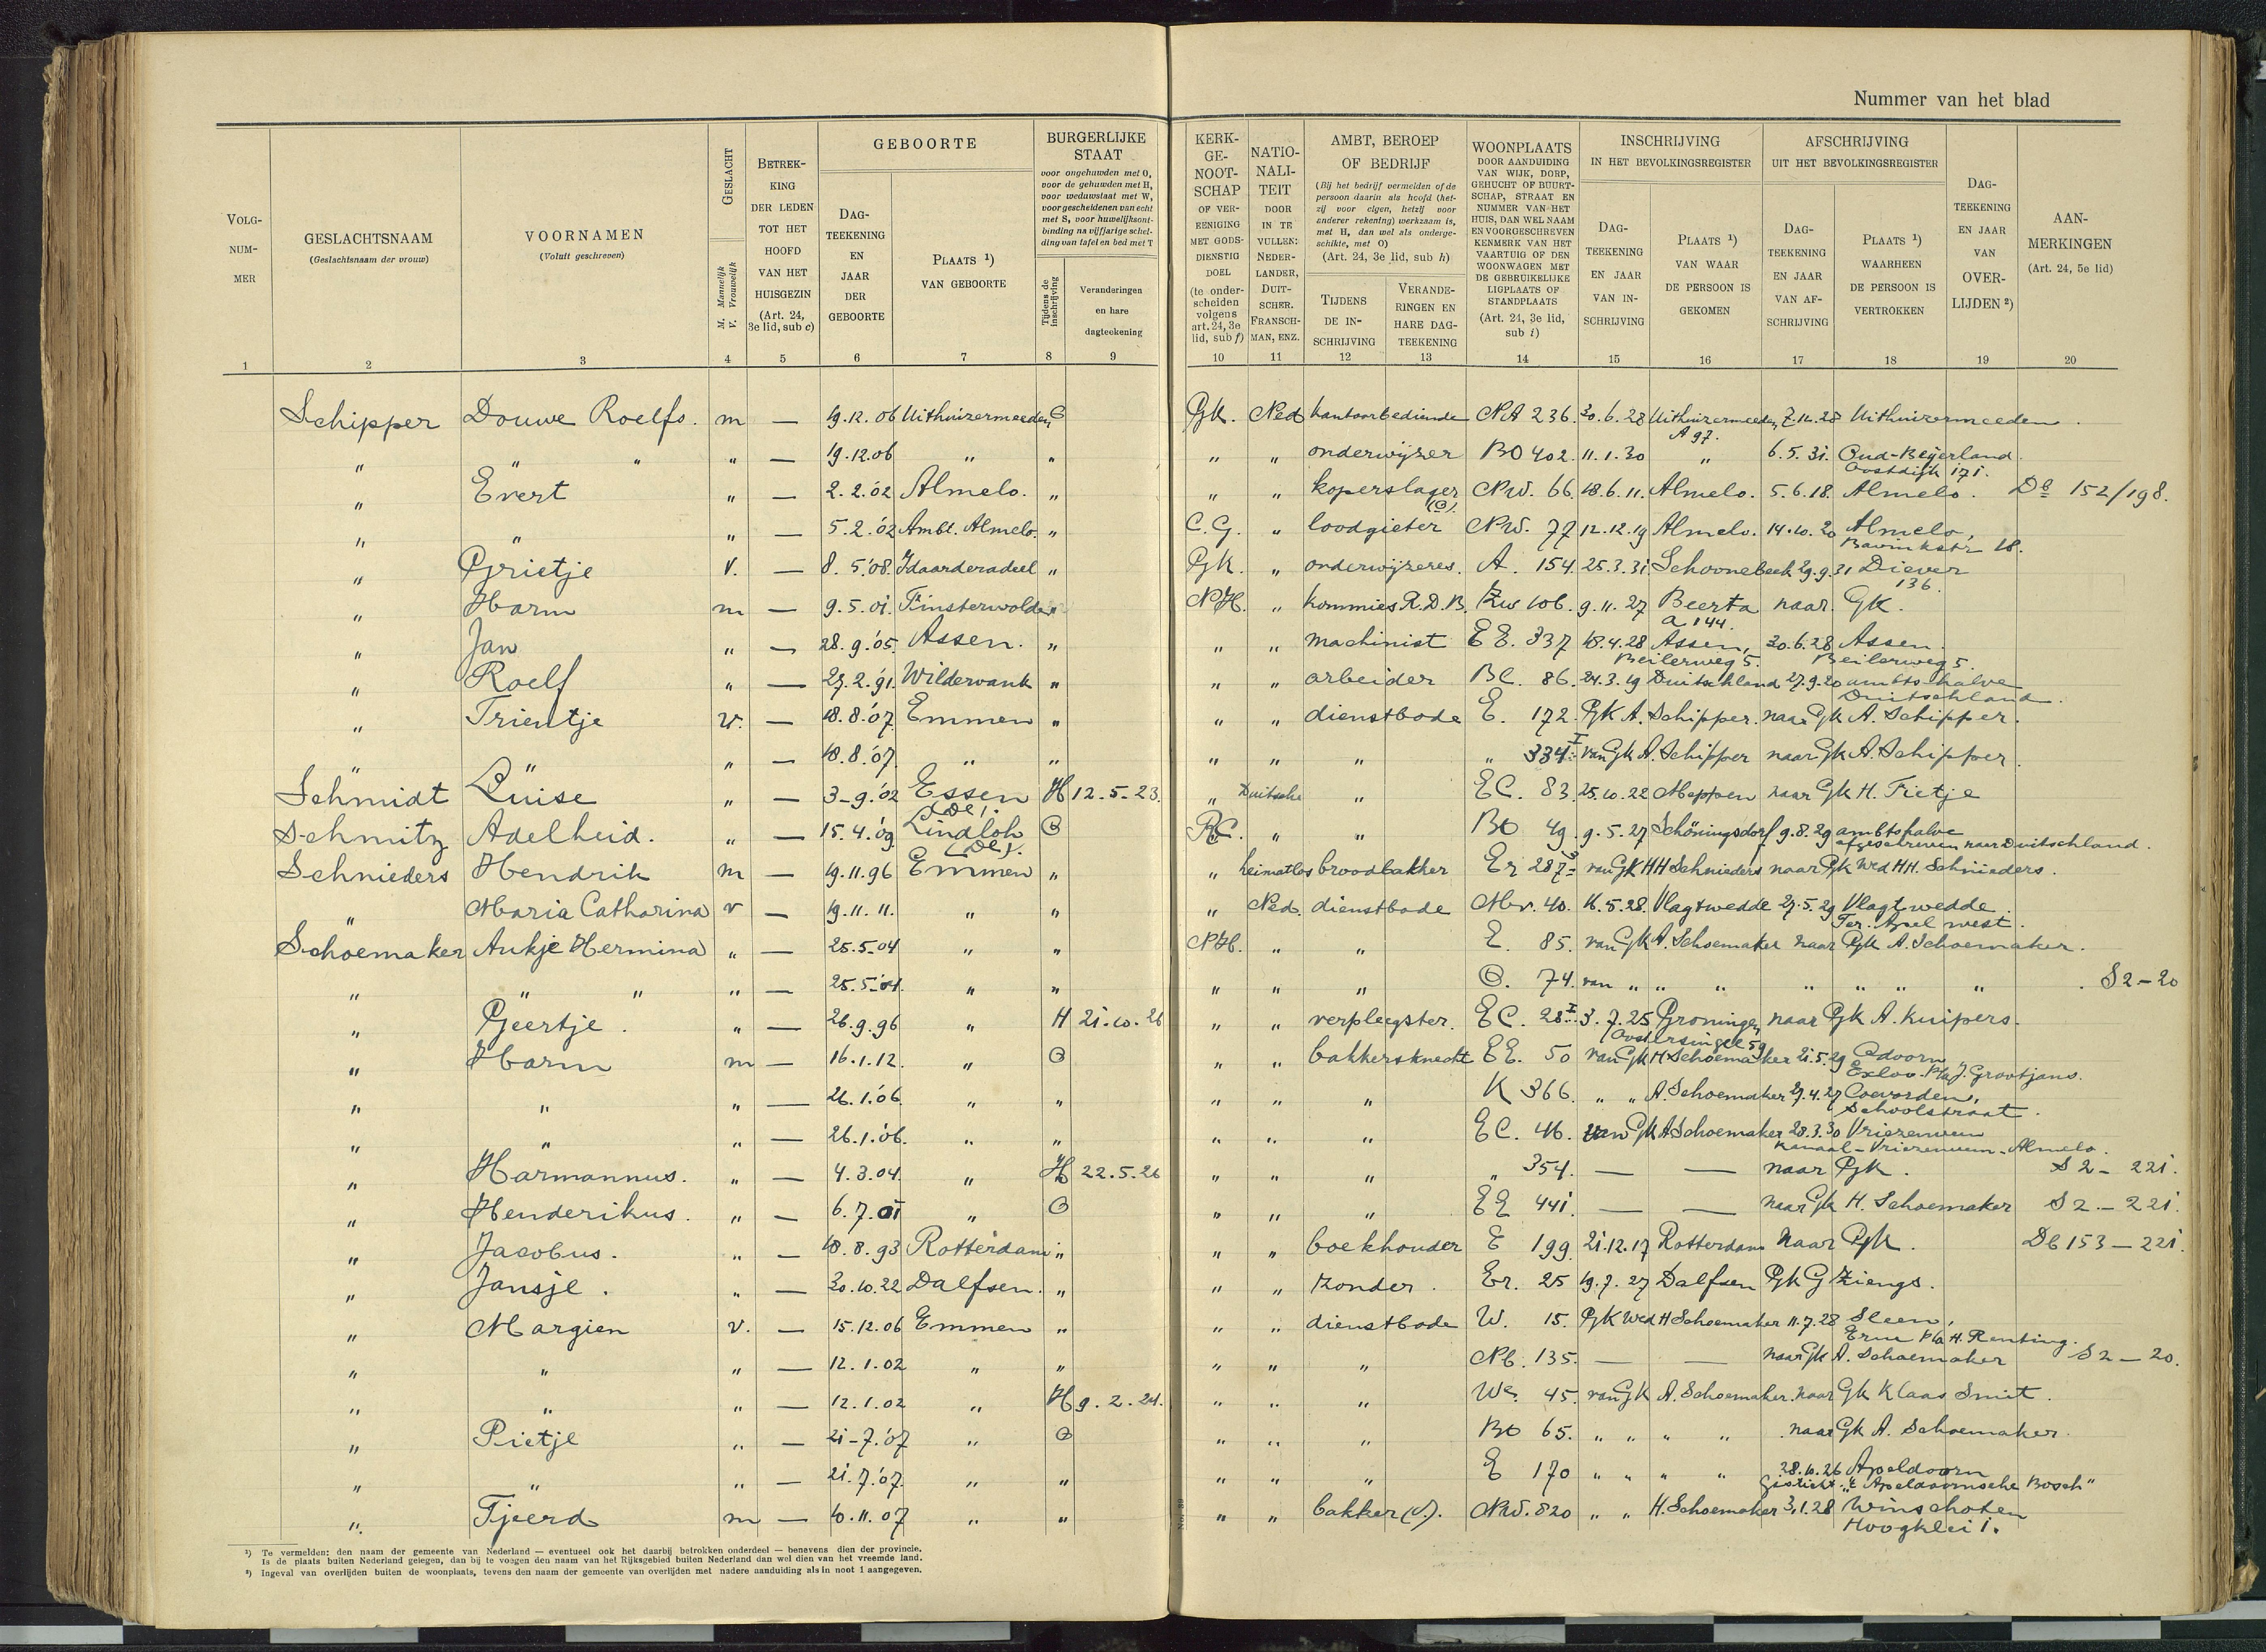 Nummer van het blad
VOLG-NUM-MER
GESLACHTSNAAM
(Geslachtsnaam der vrouw)
VOORNAMEN
(Voluit geschreven)
GESLACHT
M. Mannelijk
V. Vrouwelijk
BETREKKING DER LEDEN TOT HET HOOFD VAN HET HUISGEZIN
(Art. 24, 3e lid, sub c)
GEBOORTE
DAG-TEEKENING EN JAAR DER GEBOORTE
PLAATS ¹) VAN GEBOORTE
BURGERLIJKE STAAT
voor ongehuwden met O, voor de gehuwden met H, voor weduwstaat met W, voor gescheidenen van echt met S, voor huwelijksontbinding na vijfjarige scheiding van tafel en bed met T
Tijdens de inschrijving
Veranderingen en hare dagteekening
KERK-GE-NOOT-SCHAP OF VER-EENIGING MET GODS-DIENSTIG DOEL
(te onderscheiden volgens art. 24, 3e lid, sub f)
NATIO-NALI-TEIT DOOR IN TE VULLEN: NEDER-LANDER, DUIT-SCHER, FRANSCH-MAN, ENZ.
AMBT, BEROEP OF BEDRIJF
(Bij het bedrijf vermelden of de persoon daarin als hoofd (hetzij voor eigen, hetzij voor anderer rekening) werkzaam is, met H, dan wel als ondergeschikte, met O)
(Art. 24, 3e lid, sub h)
TIJDENS DE IN-SCHRIJVING
VERANDE-RINGEN EN HARE DAG-TEEKENING
WOONPLAATS DOOR AANDUIDING VAN WIJK, DORP, GEHUCHT OF BUURT-SCHAP, STRAAT EN NUMMER VAN HET HUIS, DAN WEL NAAM EN VOORGESCHREVEN KENMERK VAN HET VAARTUIG OF DEN WOONWAGEN MET DE GEBRUIKELIJKE LIGPLAATS OF STANDPLAATS
(Art. 24, 3e lid, sub i)
INSCHRIJVING IN HET BEVOLKINGSREGISTER
DAG-TEEKENING EN JAAR VAN IN-SCHRIJVING
PLAATS ¹) VAN WAAR DE PERSOON IS GEKOMEN
AFSCHRIJVING UIT HET BEVOLKINGSREGISTER
DAG-TEEKENING EN JAAR VAN AF-SCHRIJVING
PLAATS ¹) WAARHEEN DE PERSOON IS VERTROKKEN
DAG-TEEKENING EN JAAR VAN OVER-LIJDEN ²)
AAN-MERKINGEN
(Art. 24, 5e lid)
1 2 3 4 5 6 7 8 9 10 11 12 13 14 15 16 17 18 19 20
Schipper Douwe Roelfs. m — 19.12.06 Uithuizermeeden O Gk. Ned kantoorbediende NA 236. 30.6.28 Uithuizermeeden A 97. 7.12.28 Uithuizermeeden.
" " " " — 19.12.06 " " " " onderwijzer BO 402. 11.1.30 " 6.5.31. Oud-Beijerland. Oostdijk 171.
" Evert " — 2.2.'02 Almelo. " " " koperslager (O). NW. 66. 18.6.11. Almelo. 5.6.18. Almelo. Db 152/198.
" " " — 5.2.'02 Ambt. Almelo. " C.G. " loodgieter NW. 77 12.12.19 Almelo. 14.10.20 Almelo, Bavinkstr 18.
" Grietje v. — 8.5.'08. Idaarderadeel " Gk. " onderwijzeres. A. 154. 25.3.31. Schoonebeek 29.9.31 Diever 136.
" Harm m — 9.5.01. Finsterwolde " NH. " kommies R.D.B. Zw 106. 9.11.27 Beerta a 144. naar. GK.
" Jan " — 28.9.'05. Assen. " " " machinist EE. 337 18.4.28 Assen, Beilerweg 5. 30.6.28 Assen. Beilerweg 5.
" Roelf " — 27.2.'91. Wildervank " " " arbeider BC. 86. 24.3.19 Duitschland 27.9.20 ambtshalve Duitschland.
" Trientje v. — 18.8.'07. Emmen " " " dienstbode E. 172. GK A. Schipper. naar Gk A. Schipper.
" " " — 18.8.'07. " " " " " " 334 I. van Gk A. Schipper naar Gk A. Schipper
Schmidt Lüise " — 3-9.'02 Essen (De). H 12.5-23. " Duitsche " EC. 83. 25.10.22 Meppen naar Gk H. Tietje
Schmitz Adelheid. " — 15.4.'09. Lindloh (De). O RC. " " BO 49. 9.5.27 Schöningsdorf 9.8.29 ambtshalve afgeschreven naar Duitschland.
Schnieders Hendrik m — 19.11.96 Emmen " " heimatlos broodbakker Er 287 van GK HH Schnieders naar Gk Wed HH. Schnieders.
" Maria Catharina v — 19.11.11. " " " Ned. dienstbode Mv. 40. 16.5.28. Vlagtwedde 27.5.29 Vlagtwedde. Ter. Apel west.
Schoemaker Aukje Hermina " — 25.5-04 " " NH. " " E. 85. van Gk A. Schoemaker naar Gk A. Schoemaker.
" " " " — 25.5-'04. " " " " " O. 74. van " " " " " " " . S2-20
" Geertje. " — 26.9.96 " H 21.10.26 " " verpleegster. EC. 28 I. 3.7.25 Groningen Oostersingel 59 naar Gk A. Kuipers.
" Harm m — 16.1.12. " O " " bakkersknecht EE. 50 van Gk H Schoemaker 21.5.29 Odoorn, Exloo. P/a J. Grootjans.
" " " — 26.1.'06. " " " " " K 366. " " A. Schoemaker 27.4.27 Coevorden, Schoolstraat.
" " " — 26.1.'06. " " " " " EC. 46. van Gk A Schoemaker 28.3.30 Vriezenveen Kanaal-Vriezenveen-Almelo.
" Harmannus. " — 4.3.04. " H 22.5.26 " " " " 354. — — naar Gk. S2-221.
" Henderikus. " — 6.7.01 " O " " " EE 441. — — naar Gk H. Schoemaker S2-221.
" Jacobus. " — 18.8.93 Rotterdam " " " boekhouder E 199. 21.12.17 Rotterdam naar Gk. Db 153-221.
" Jansje. " — 30.10.22 Dalfsen. " " " zonder. Er. 25 19.7.27 Dalfsen Gk G Ziengs.
" Margien v. — 15.12.06 Emmen " " " dienstbode W. 15. Gk Wed H Schoemaker 11.7.28 Sleen, Erm P/a H. Renting.
" " " — 12.1.02 " " " " " Nb. 135. — — naar Gk A. Schoemaker S2-20.
" " " — 12.1.02 " H 9.2.24. " " " We. 45. van GK A. Schoemaker. naar Gk Klaas Smit.
" Pietje " — 21-7.'07 " O " " " BO 65. " " " " naar Gk A. Schoemaker.
" " " — 21.7.'07. " " " " " E 170 " " " " 28.10.26 Apeldoorn Gesticht: "'t Apeldoornsche Bosch"
" Tjeerd m — 10.11.07 " " " " bakker (O). NW. 820 " " H. Schoemaker 3.1.28 Winschoten Hoogklei 1.
¹) Te vermelden: den naam der gemeente van Nederland — eventueel ook het daarbij betrokken onderdeel — benevens dien der provincie.
Is de plaats buiten Nederland gelegen, dan bij te voegen den naam van het Rijksgebied buiten Nederland dan wel dien van het vreemde land.
²) Ingeval van overlijden buiten de woonplaats, tevens den naam der gemeente van overlijden met nadere aanduiding als in noot 1 aangegeven.